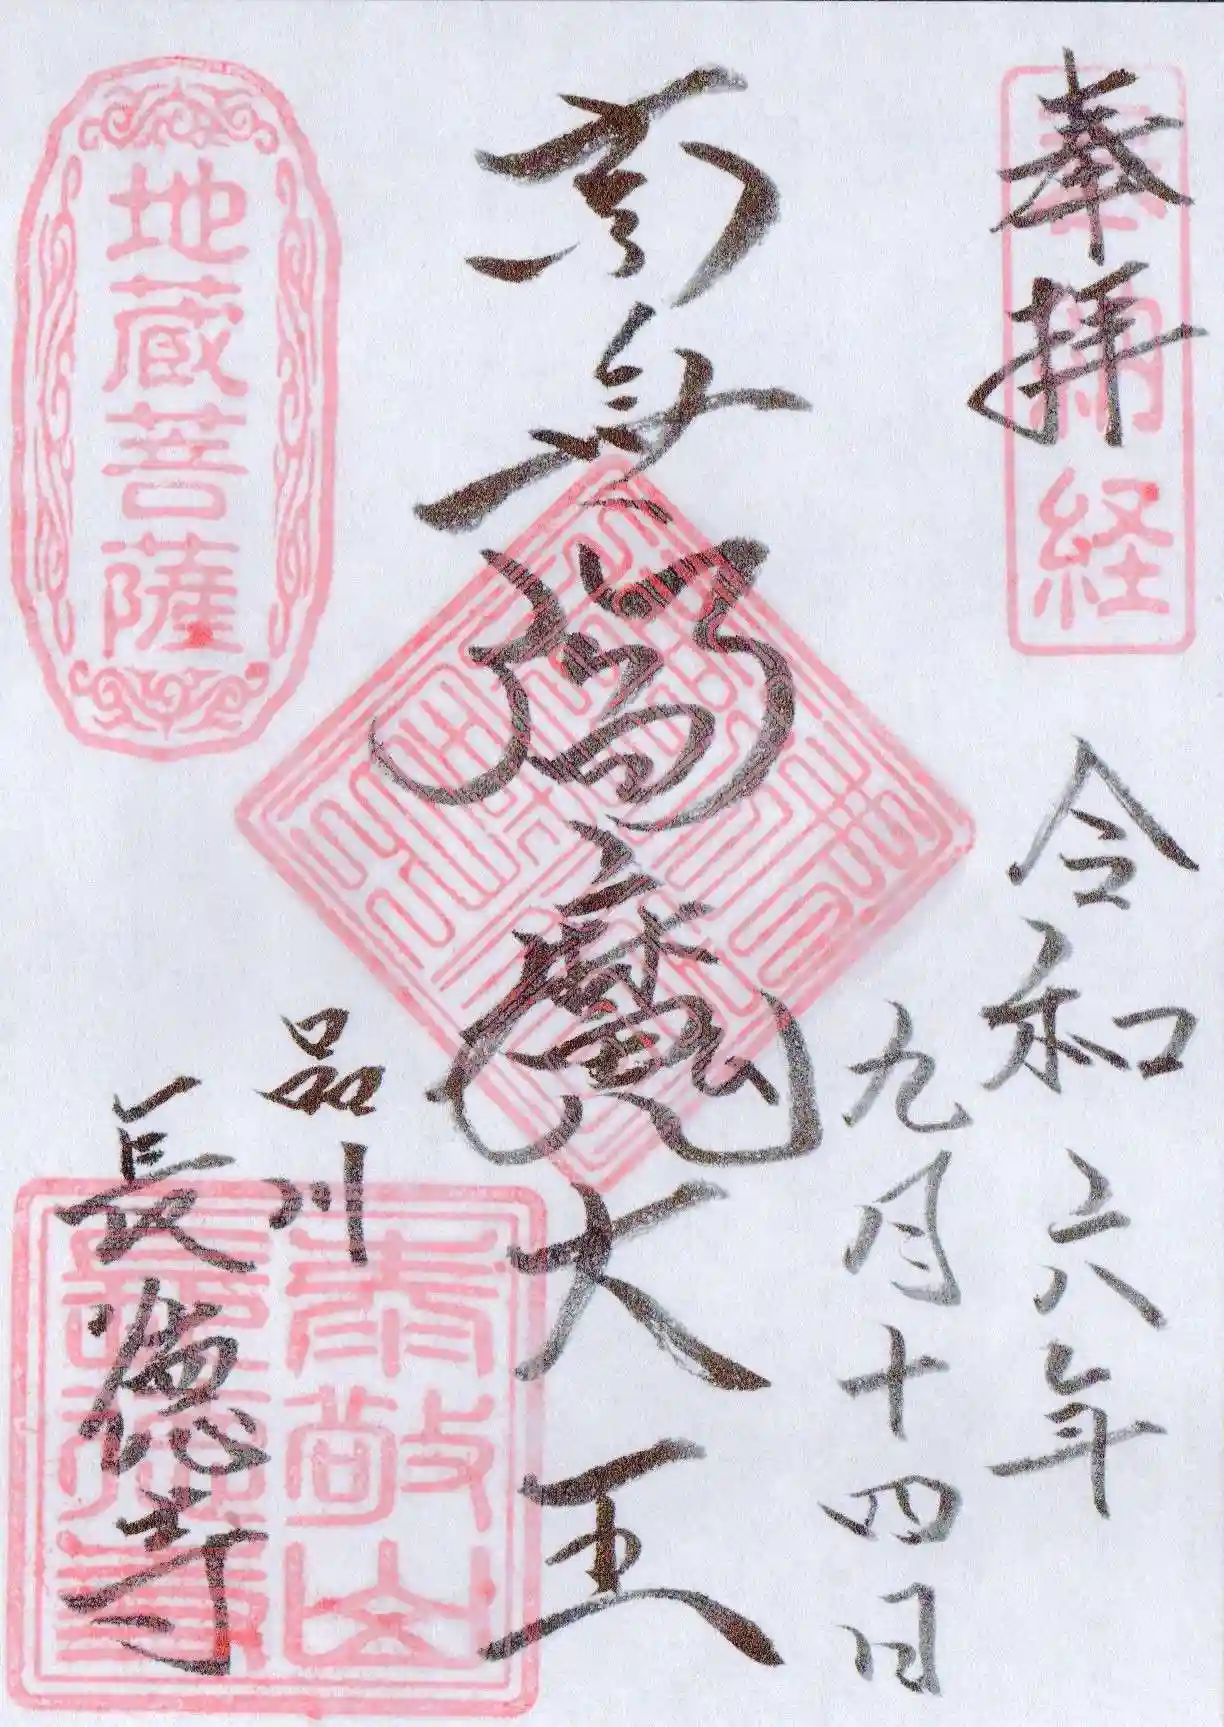 奉拝
奉納経
令和六年
九月十四日
南無閻魔大王
品川
長徳寺
地蔵菩薩